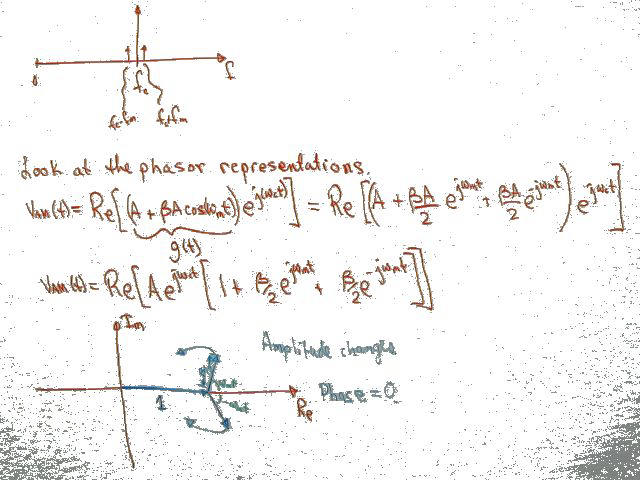 0 f
f_c
f_c-f_m f_c+f_m
Look at the phasor representations.
V_AM(t) = Re[(A + βA cos(ω_m t)) e^{j(ω_c t)}] = Re[(A + βA/2 e^{jω_m t} + βA/2 e^{-jω_m t}) e^{jω_c t}]
g(t)
V_AM(t) = Re[A e^{jω_c t} [1 + β/2 e^{jω_m t} + β/2 e^{-jω_m t}]]
Im
Amplitude changes
Phase = 0
1 Re